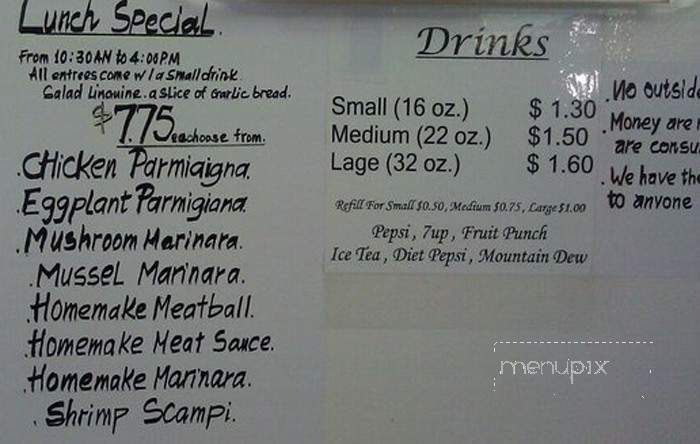 Lunch Special.
From 10:30AN to 4:00PM
All entrees come w/a small drink
Salad Linouine. a slice of Garlic bread.
$7.75 eachoose from.
.CHicken Parmiaigna.
.Eggplant Parmigiana.
.Mushroom Marinara.
.Mussel Marinara.
.Homemake Meatball.
.Homemake Meat Sauce.
.Homemake Marinara.
.Shrimp Scampi.
Drinks
Small (16 oz.) $ 1.30
Medium (22 oz.) $1.50
Lage (32 oz.) $ 1.60
Refill For Small $0.50, Medium $0.75, Large $1.00
Pepsi , 7up , Fruit Punch
Ice Tea , Diet Pepsi , Mountain Dew
.No outside
.Money are
are consu
.We have the
to anyone
menupix